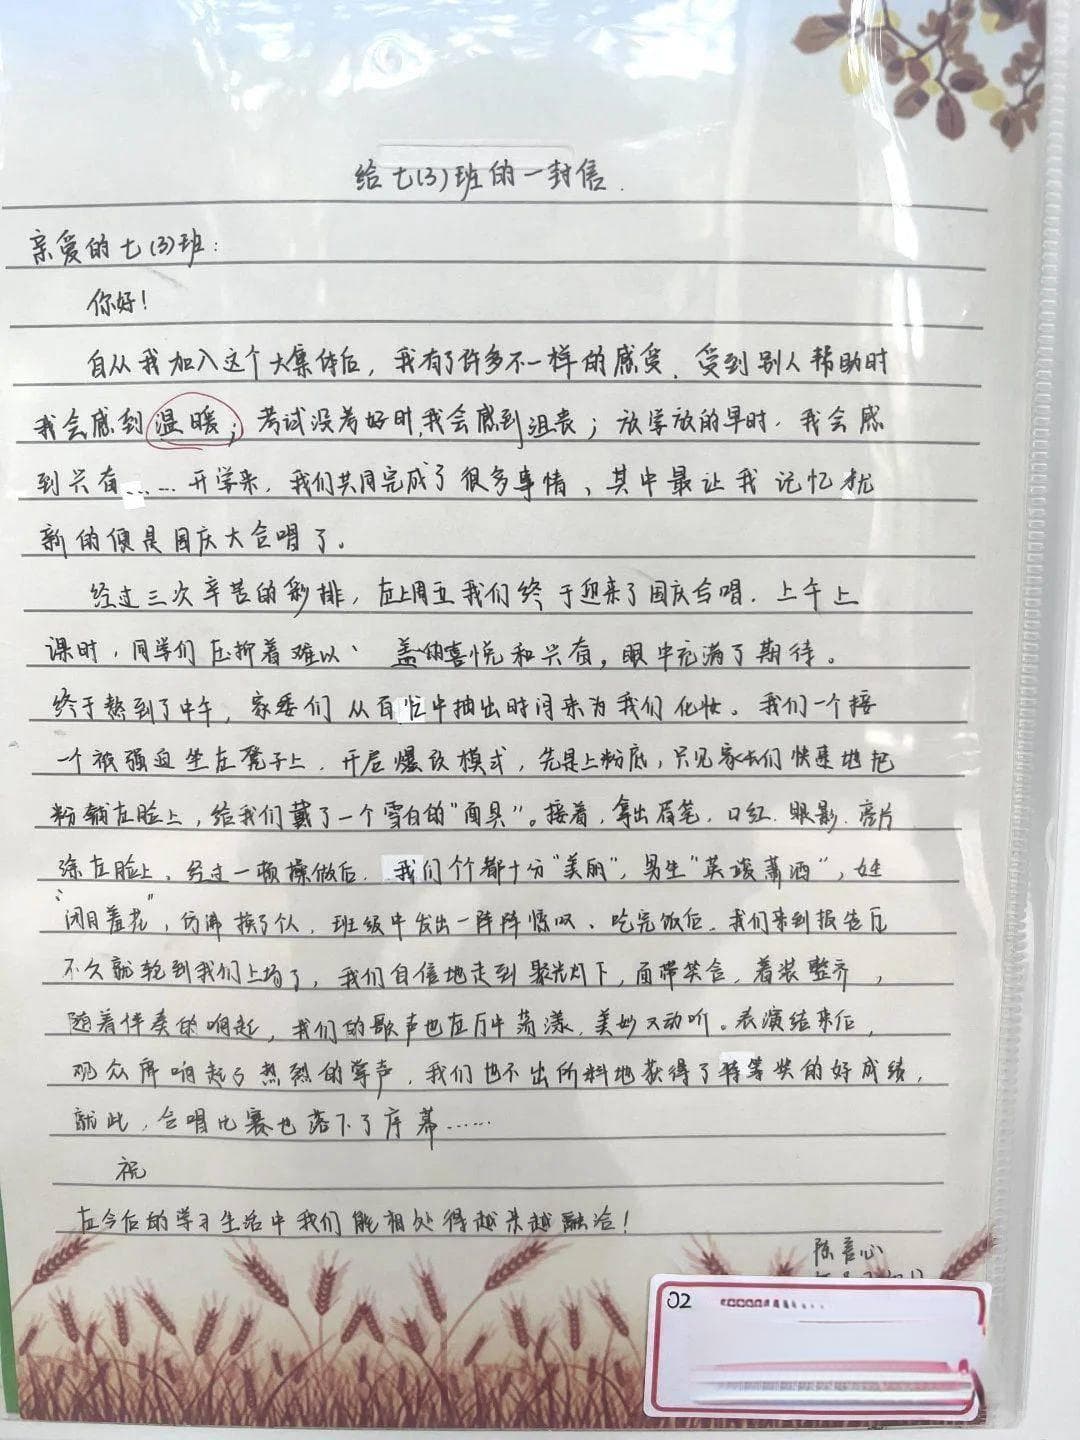 给七(3)班的一封信.
亲爱的七(3)班:
你好!
自从我加入这个大集体后,我有了许多不一样的感受.受到别人帮助时
我会感到温暖;考试没考好时,我会感到沮丧;放学放的早时,我会感
到兴奋......开学来,我们共同完成了很多事情、其中最让我记忆犹
新的便是国庆大合唱了。
经过三次辛苦的彩排,在上周五我们终于迎来了国庆合唱.上午上
课时,同学们压抑着难以、盖的喜悦和兴奋,眼中充满了期待。
终于熬到了中午,家委们从百忙中抽出时间来为我们化妆。我们一个接
一个被强迫坐在凳子上.开启爆改模式,先是上粉底,只见家长们快速地把
粉铺在脸上,给我们戴了一个雪白的"面具"。接着,拿出眉笔.口红.眼影.亮片
涂在脸上,经过一顿操做后.我们个个都十分"美丽",男生"英俊萧洒",女生
"闭目羞花",仿沸换了个人,班级中发出一阵阵惊叹、吃完饭后.我们来到报告厅
不久就轮到我们上场了,我们自信地走到聚光灯下,面带笑容,着装整齐,
随着伴奏的响起,我们的歌声也在厅中荡漾,美妙又动听。表演结束后,
观众席响起了热烈的掌声,我们也不出所料地获得了特等奖的好成绩,
就此,合唱比赛也落下了序幕......
祝
在今后的学习生活中我们能相处得越来越融洽!
陈言心
02